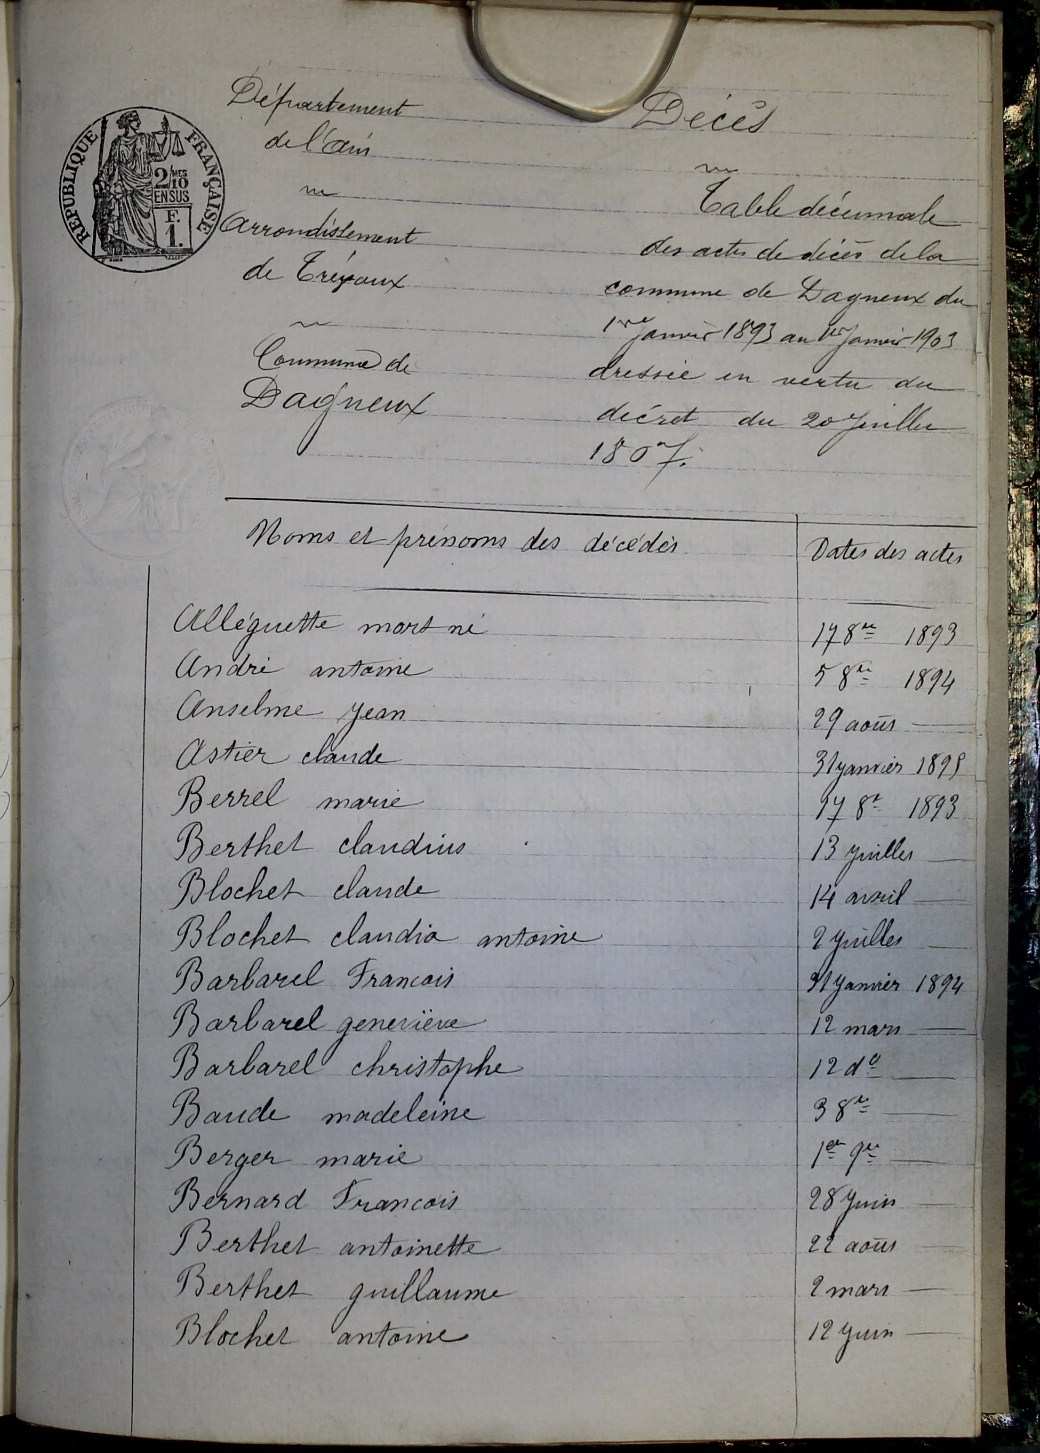 Département
de l'Ain
Arrondissement
de Trévoux
Commune de
Dagneux
RÉPUBLIQUE FRANÇAISE
2/10 MES
EN SUS
F.
1.
Décès
Table décennale
des actes de décès de la
commune de Dagneux du
1er Janvier 1893 au 1er Janvier 1903
dressée en vertu du
décret du 20 Juillet
1807.
Noms et prénoms des décédés
Dates des actes
Alléguette mort né 17 8re 1893
André antoine 5 8re 1894
Anselme Jean 29 août —
Astier claude 31 janvier 1895
Berrel marie 17 8e 1893
Berthet claudius 13 Juillet —
Blochet claude 14 avril —
Blochet claudia antoine 2 Juillet —
Barbarel Francois 31 Janvier 1894
Barbarel geneviève 12 mars —
Barbarel christophe 12 do —
Baude madeleine 3 8re —
Berger marie 1er 9re —
Bernard Francois 28 Juin —
Berthet antoinette 22 août —
Berthet guillaume 2 mars —
Blochet antoine 12 Juin —